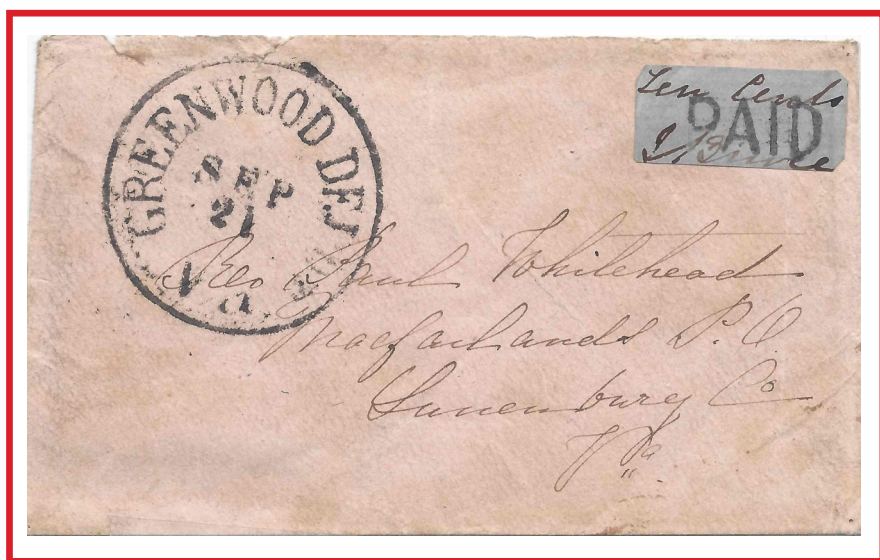 GREENWOOD DEP
SEP
21
Va
Ten Cents
PAID
J. Bruce
Rev Paul Whitehead
Macfarlands P. O
Lunenburg Co
Va